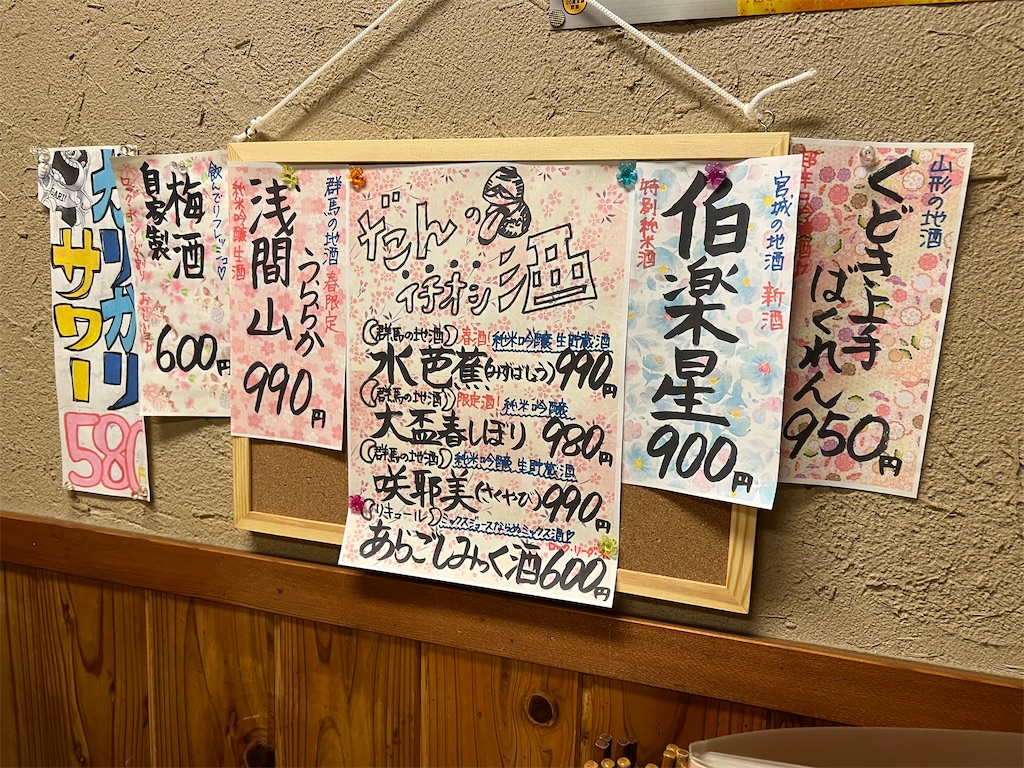 GARI!
ガリガリ
サワー
580
飲んでリフレッシュ♡
梅酒
自家製
600円
群馬の地酒 春限定
うららか
浅間山
純米吟醸生酒
990円
だんの
イチオシ酒
(群馬の地酒) 春酒! 純米吟醸 生貯蔵酒
水芭蕉(みずばしょう) 990円
(群馬の地酒) 限定酒! 純米吟醸
大盃春しぼり 980円
(群馬の地酒) 純米吟醸 生貯蔵酒
咲耶美(さくやび) 990円
(リキュール) ミックスジュースならぬミックス酒♡
あらごしみっく酒 600円
宮城の地酒 新酒
伯楽星
特別純米酒
900円
山形の地酒
くどき上手
ばくれん
950円